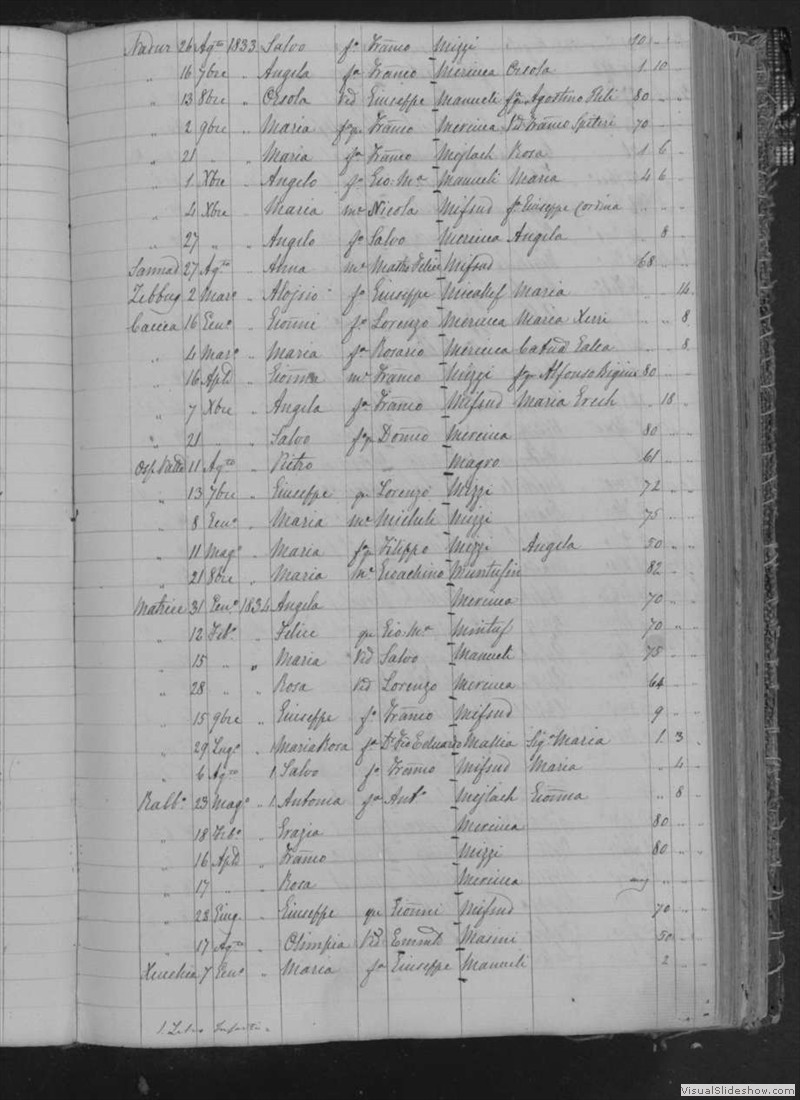 Nadur 26 Agto 1833 Salvo fo Franco Mizzi 80
" 16 7bre " Angela fa Franco Mercieca Orsola 1 10
" 13 8bre " Orsola Vid Giuseppe Manueli Agostino 80
" 2 9bre " Maria Franco Mercieca Vid Franco Spiteri 70
" 21 " " Maria fa Franco Mejlach Rosa 1 6
" 1 Xbre " Angelo fo Gio: Ma Manueli Maria 4 6
" 4 Xbre " Maria me Nicola Mifsud Giuseppe Cordina
" 27 " " Angelo fo Salvo Mercieca Angela 8
Sannad 27 Agto " Anna me Mifsud 68
Zebbug 2 Marzo " Aloisio fo Giuseppe Micallef Maria 14
Caccia 16 Geno " Gionni fo Lorenzo Mercieca Maria Xerri 8
" 4 Marzo " Maria fa Rosario Mercieca Galea 8
" 16 Apl " me Franco Mizzi Alfonso 80
" 7 Xbre " Angela fa Franco Mifsud Maria Grech 18
" 21 " " Salvo Mercieca 80
11 Agto " Pietro Magro 61
" 13 7bre " Giuseppe qu Lorenzo Mizzi 72
" 8 Geno " Maria me Micheli Mizzi 75
" 11 Mago " Maria Filippo Mizzi Angela 50
" 21 8bre " Maria me Gioachino 82
Matrice 31 Geno 1834 Angela Mercieca 70
" 12 Febo " Felice qu Gio: Ma Mintuf 70
" 15 " " Maria Vid Salvo Manueli 75
" 28 " " Rosa Vid Lorenzo Mercieca 64
" 15 9bre " Giuseppe fo Franco Mifsud 9
" 29 Lugo " 1 Maria Rosa fa Dr Eduardo Mallia Siga Maria 1 3
" 6 Agto 1 Salvo fo Franco Mifsud Maria 4
Rabbo 23 Mago " 1 Antonia fa Anto Mejlach Gionna 8
" 18 Febo " Grazia Mercieca 80
" 16 Apl " Franco Mizzi 80
" 17 " " Rosa Mercieca
" 28 Giug " Giuseppe qu Gionni Mifsud 70
" 17 Agto " Olimpia Vid Masini 50
Xeuchia 7 Geno " Maria fa Giuseppe Manueli 2
VisualSlideshow.com